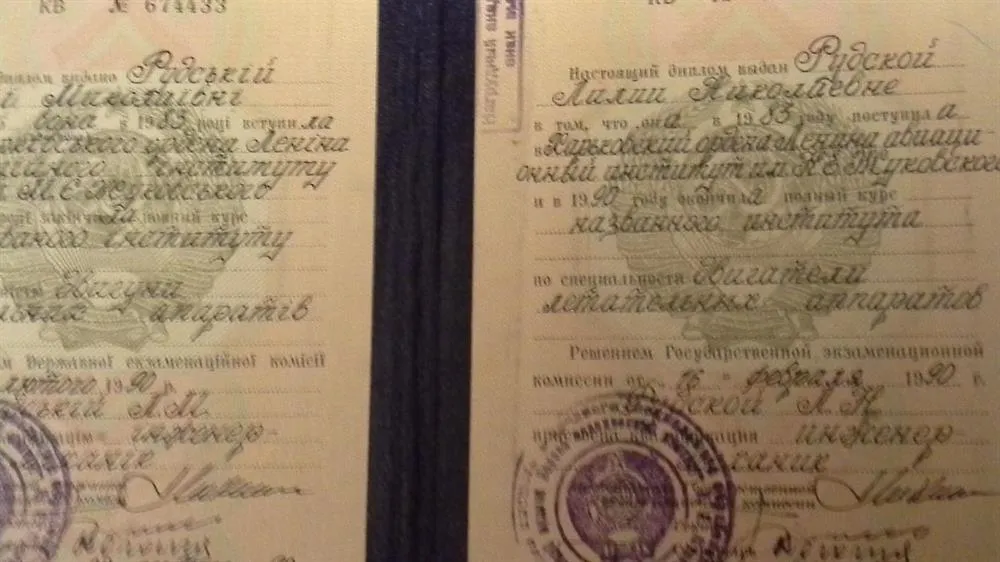 КВ № 674433
диплом видано Рудській
й Миколаївні
вона в 1983 році вступила
ківського ордена Леніна
ційного інституту
М.Є. Жуковського
році закінчила повний курс
званого інституту
Двигуни
льних апаратів
Державної екзаменаційної комісії
лютого 1990 р.
ській Л.М.
інженер-
ханік
Настоящий диплом выдан Рудской
Лилии Николаевне
в том, что она в 1983 году поступила
в Харьковский ордена Ленина авиаци
онный институт им. Н.Е. Жуковского
и в 1990 году окончила полный курс
названного института
по специальности Двигатели
летательных аппаратов
Решением Государственной экзаменационной
комиссии от „16" февраля 1990 г.
Рудской Л.Н.
присвоена квалификация инженер-
ханик
комиссии
Нагрудный